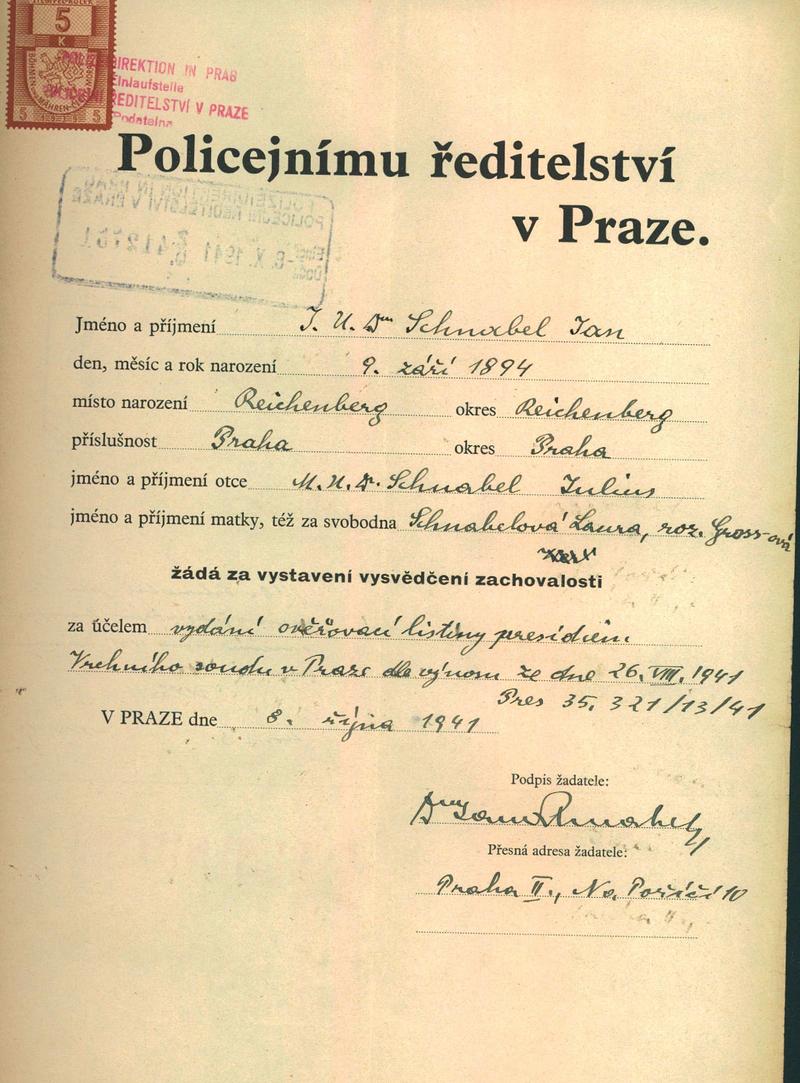 5
K
BÖHMEN u. MÄHREN
5 1939 5
DIREKTION IN PRAG
Einlaufstelle
ŘEDITELSTVÍ V PRAZE
Podatelna
Policejnímu ředitelství
v Praze.
Jméno a příjmení J. U. Dr Schnabel Jan
den, měsíc a rok narození 9. září 1894
místo narození Reichenberg okres Reichenberg
příslušnost Praha okres Praha
jméno a příjmení otce M.U.Dr. Schnabel Julius
jméno a příjmení matky, též za svobodna Schnabelová Laura, roz. Gross-ová
žádá za vystavení vysvědčení zachovalosti
za účelem vydání ověřovací listiny presidiem
Vrchního soudu v Praze dle výnosu ze dne 26. VIII. 1941
Pres 35. 321/13/41
V PRAZE dne 8. října 1941
Podpis žadatele:
Dr Jan Schnabel
Přesná adresa žadatele:
Praha II., Na Poříčí 10